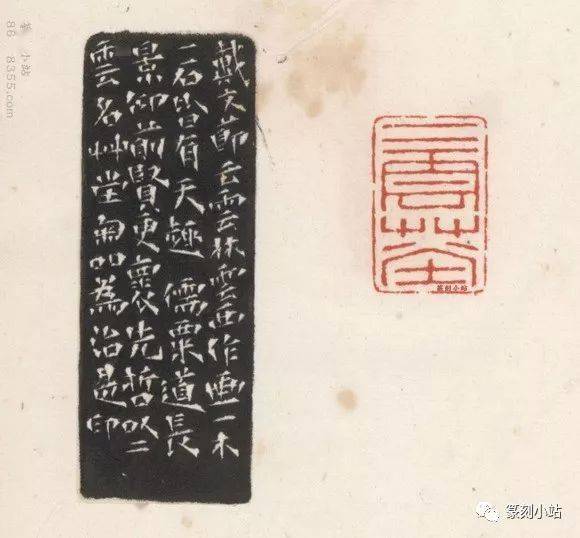 戴文節云雲林雲西作画一木
一石皆有天趣儒粟道長
景仰前賢更裒先哲以二
雲名艸堂為治是印
二雲艸堂
篆刻小站
篆 小站
86 8355.com
篆刻小站